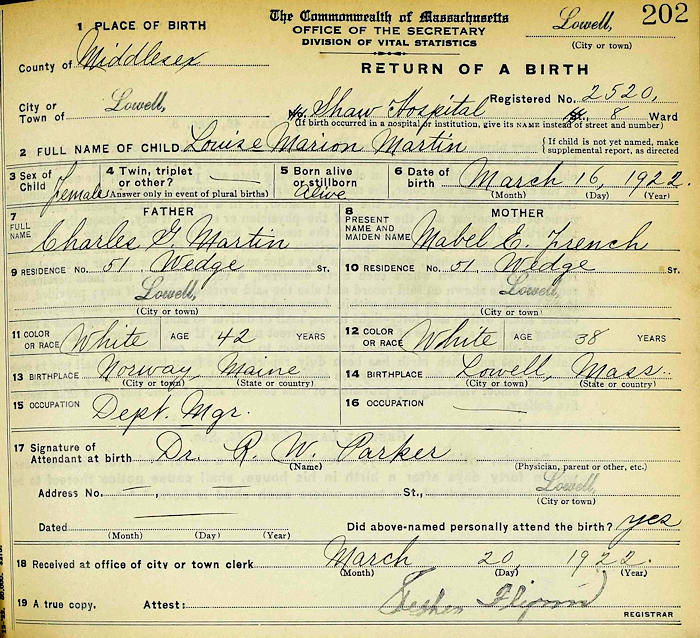 The Commonwealth of Massachusetts
OFFICE OF THE SECRETARY
DIVISION OF VITAL STATISTICS
Lowell,
(City or town)
202
1 PLACE OF BIRTH
County of Middlesex
RETURN OF A BIRTH
Registered No. 2520,
City or Town of Lowell,
Shaw Hospital 8 Ward
(If birth occurred in a hospital or institution, give its NAME instead of street and number)
2 FULL NAME OF CHILD Louise Marion Martin
{If child is not yet named, make supplemental report, as directed
3 Sex of Child Female
4 Twin, triplet or other? —
(Answer only in event of plural births)
5 Born alive or stillborn Alive
6 Date of birth March 16, 1922.
(Month) (Day) (Year)
7 FATHER
FULL NAME Charles G. Martin
8 MOTHER
PRESENT NAME AND MAIDEN NAME Mabel E. French
9 RESIDENCE No. 51 Wedge ST.
Lowell,
(City or town)
10 RESIDENCE No. 51, Wedge ST.
Lowell,
(City or town)
11 COLOR OR RACE White AGE 42 YEARS
12 COLOR OR RACE White AGE 38 YEARS
13 BIRTHPLACE Norway, Maine
(City or town) (State or country)
14 BIRTHPLACE Lowell, Mass.
(City or town) (State or country)
15 OCCUPATION Dept. Mgr.
16 OCCUPATION —
17 Signature of Attendant at birth Dr. R. W. Parker
(Name) (Physician, parent or other, etc.)
Address No. —, — St., Lowell,
(City or town)
Dated
(Month) (Day) (Year)
Did above-named personally attend the birth? yes
18 Received at office of city or town clerk March 20, 1922.
(Month) (Day) (Year)
19 A true copy. Attest: Stephen Flynn
REGISTRAR